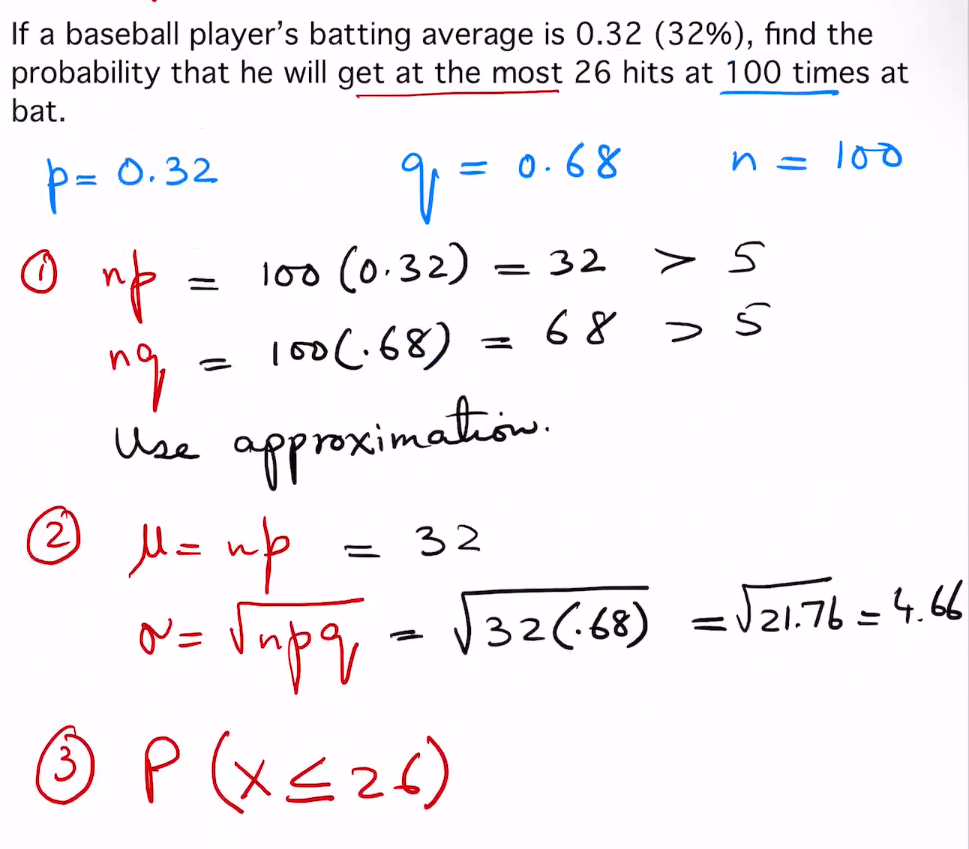 If a baseball player’s batting average is 0.32 (32%), find the
probability that he will get at the most 26 hits at 100 times at
bat.
p = 0.32 q = 0.68 n = 100
① np = 100 (0.32) = 32 > 5
nq = 100(.68) = 68 > 5
Use approximation.
② μ = np = 32
σ = √npq = √32(.68) = √21.76 = 4.66
③ P (x ≤ 26)